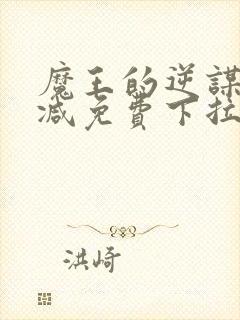 魔王的逆謀
减免費下拉
洪崎